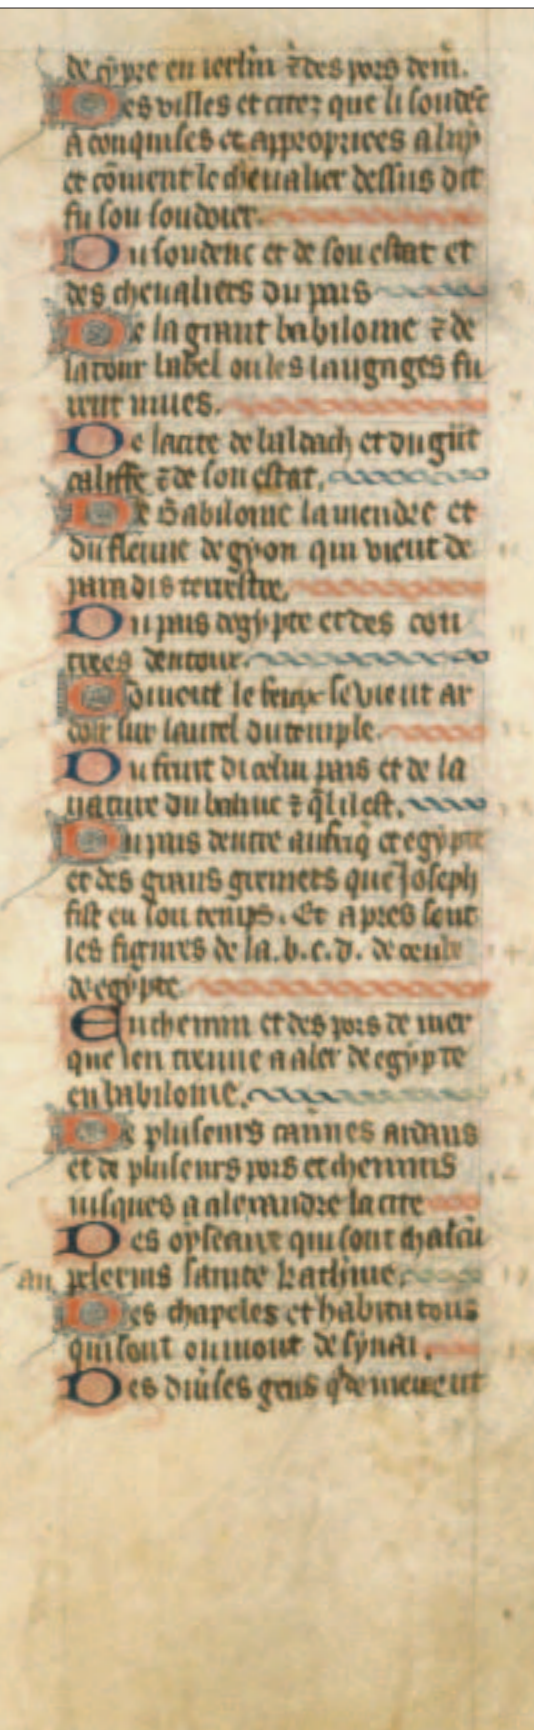 de cypre en ierlm̄ ⁊ des pors dem̄.
Des villes et citez que li soudēc
a conquises et appropriees a luy
et cōment le cheualier dessus dit
fu son soudoier.
Du soudenc et de son estat et
des cheualiers du pais
De la grant babilonie ⁊ de
la tour babel ou les langages fu
rent mues.
De la cite de baldach et du gūt
califfe ⁊ de son estat.
De Babilonie la mendre et
du fleuue de gyon qui vient de
paradis terrestre.
Du pais degypte et des con
trees dentour.
Coment le fenix se vient ar
doir sur lautel du temple.
Du fruit dicelui pais et de la
nature du balme ⁊ q̄l il est.
Du pais dentre aufriq̄ et egypte
et des grans greniers que Joseph
fist en son temps. Et apres sont
les figures de la .b.c.d. de ceulx
de egypte
En chemin et des pors de mer
que len treuue a aler de egypte
en babilonie.
De pluseurs cannes ardans
et de pluseurs pors et chemins
iusques a alexandre la cite
Des oyseaux qui font chascū
an pelerins sainte katherine.
Des chapeles et habitatons
qui sont ou mont de synai.
Des diūses gens q̄ demeurent